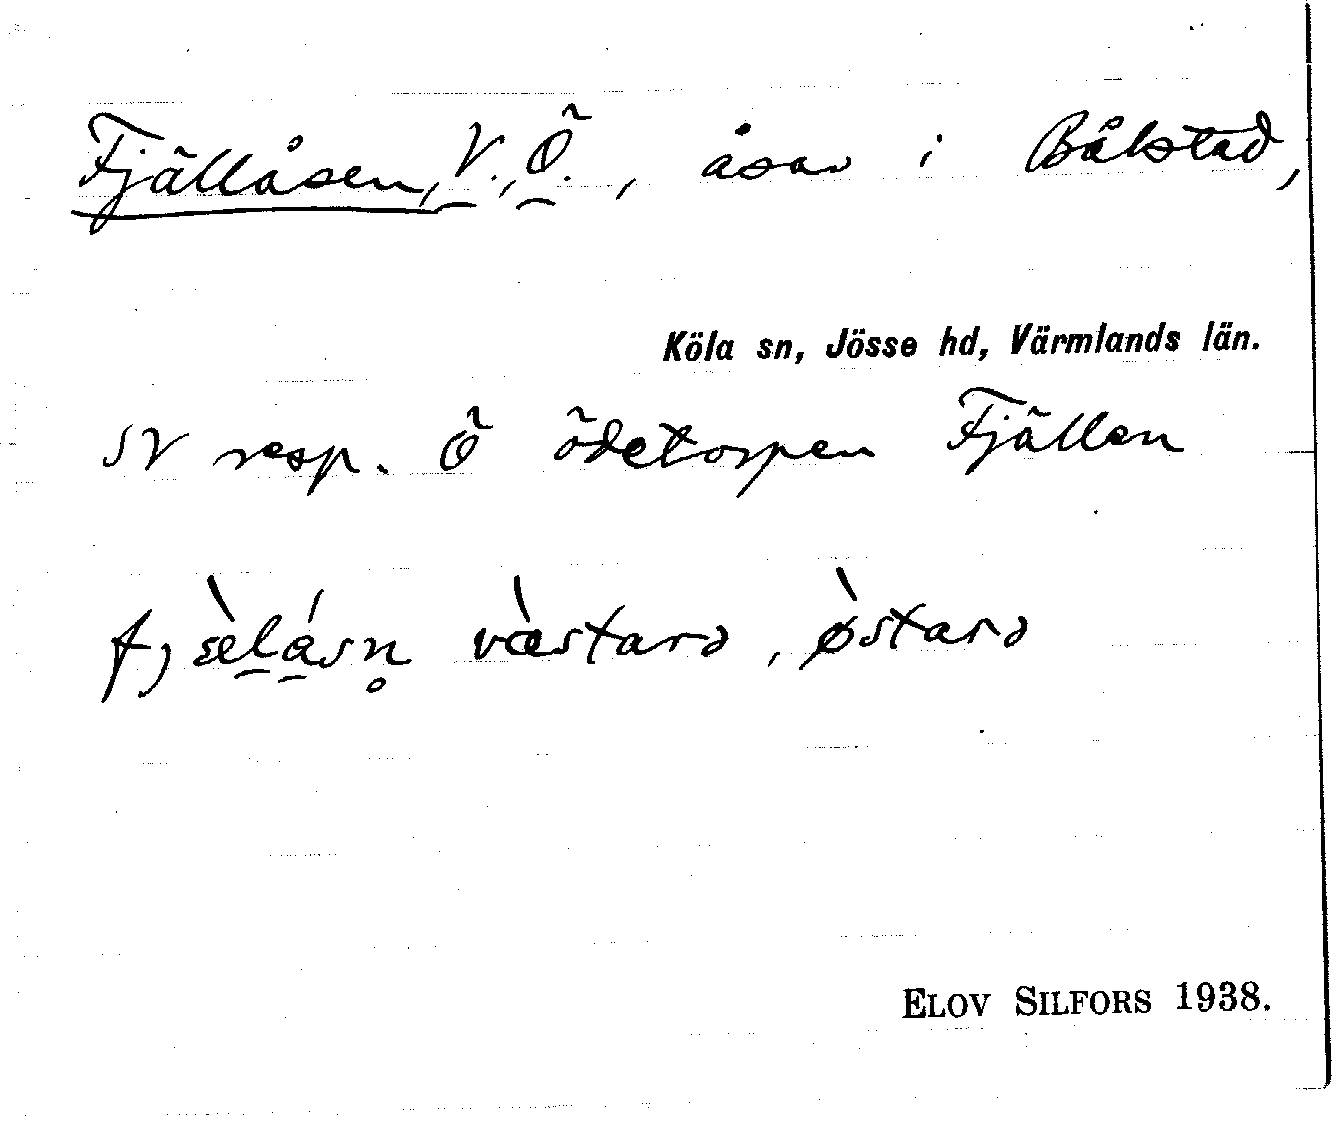 Fjällåsen, V., Ö., åsar i Bålstad,
Köla sn, Jösse hd, Värmlands län.
SV resp. Ö ödetorpen Fjällen
fjæ̀lásn̥ væ̀starə, ø̀starə
ELOV SILFORS 1938.